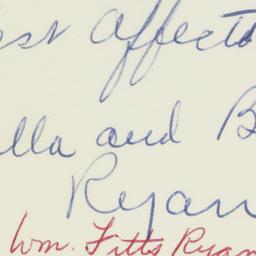 est affect
lla and B
Ryan
Wm. Fitts Ryan